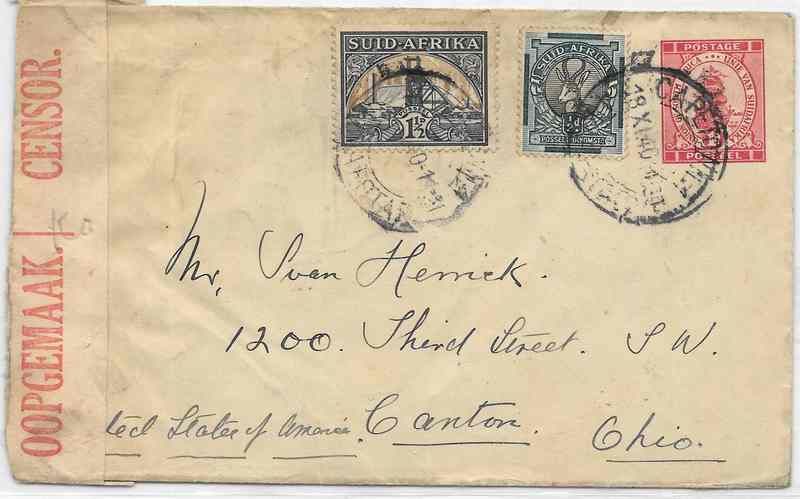 OOPGEMAAK. | CENSOR.
SUID-AFRIKA
POSSEEL
1½D
SUID-AFRIKA
½D
POSSEEL-INKOMSTE
1 POSTAGE 1
UNIE VAN SUIDAFRIKA
1 POSSEEL 1
CAPE TOWN
18 XI 40
Mr, Svan Herrick.
1200. Third Street. S W.
ted States of America. Canton.
Ohio.